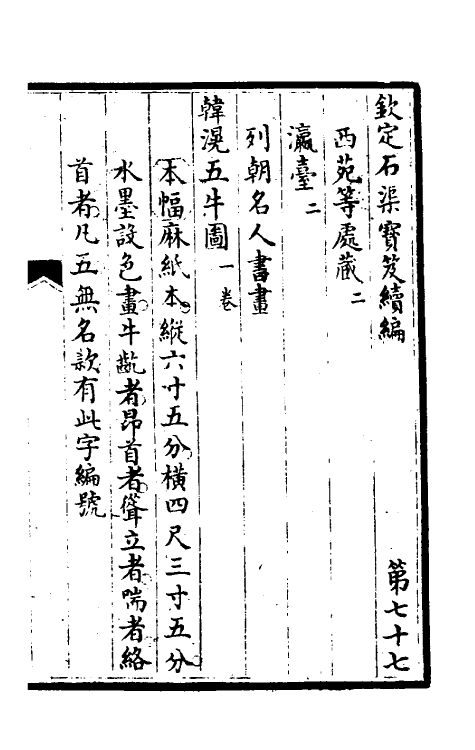 欽定石渠寶笈續編 第七十七
西苑等處藏二
瀛臺二
列朝名人書畫
韓滉五牛圖一卷
本幅麻紙本縱六寸五分橫四尺三寸五分
水墨設色畫牛齕者昂首者聳立者喘者絡
首者凡五無名款有此字編號